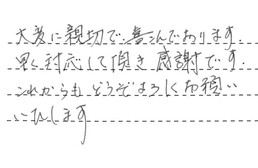 大変に親切で、喜んでおります。
早く対応して頂き感謝です。
これからもどうぞよろしくお願い
いたします